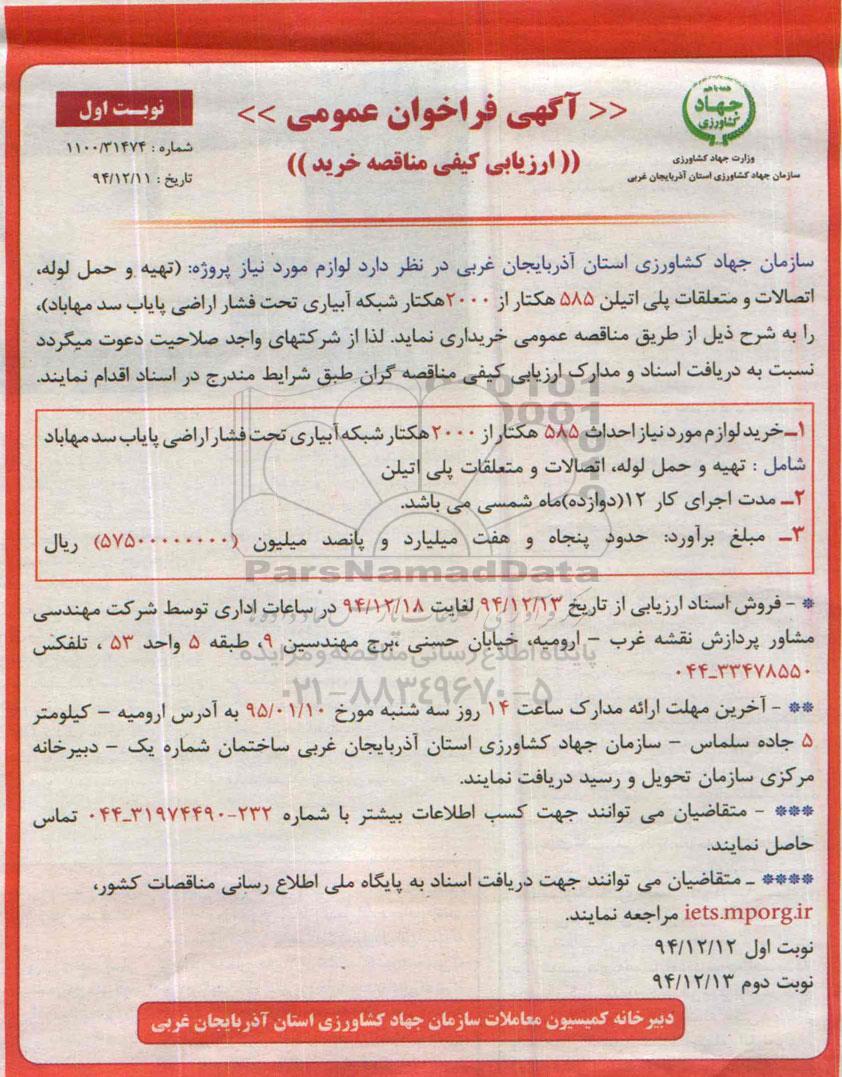 همه با هم
جهاد
کشاورزی
وزارت جهاد کشاورزی
سازمان جهاد کشاورزی استان آذربایجان غربی
<< آگهی فراخوان عمومی >>
(( ارزیابی کیفی مناقصه خرید ))
نوبت اول
شماره : ۱۱۰۰/۳۱۴۷۴
تاریخ : ۹۴/۱۲/۱۱
سازمان جهاد کشاورزی استان آذربایجان غربی در نظر دارد لوازم مورد نیاز پروژه: (تهیه و حمل لوله،
اتصالات و متعلقات پلی اتیلن ۵۸۵ هکتار از ۲۰۰۰هکتار شبکه آبیاری تحت فشار اراضی پایاب سد مهاباد)،
را به شرح ذیل از طریق مناقصه عمومی خریداری نماید. لذا از شرکتهای واجد صلاحیت دعوت میگردد
نسبت به دریافت اسناد و مدارک ارزیابی کیفی مناقصه گران طبق شرایط مندرج در اسناد اقدام نمایند.
۱ـ خرید لوازم مورد نیاز احداث ۵۸۵ هکتار از ۲۰۰۰ هکتار شبکه آبیاری تحت فشار اراضی پایاب سد مهاباد
شامل : تهیه و حمل لوله، اتصالات و متعلقات پلی اتیلن
۲ـ مدت اجرای کار ۱۲(دوازده)ماه شمسی می باشد.
۳ـ مبلغ برآورد: حدود پنجاه و هفت میلیارد و پانصد میلیون (۵۷۵۰۰۰۰۰۰۰۰) ریال
ParsNamadData
* - فروش اسناد ارزیابی از تاریخ ۹۴/۱۲/۱۳ لغایت ۹۴/۱۲/۱۸ در ساعات اداری توسط شرکت مهندسی
مشاور پردازش نقشه غرب – ارومیه، خیابان حسنی ،برج مهندسین ۹، طبقه ۵ واحد ۵۳ ، تلفکس
۰۴۴ـ۳۳۴۷۸۵۵۰
پایگاه اطلاع رسانی مناقصه و مزایده
۰۲۱-۸۸۳۴۹۶۷۰-۵
** - آخرین مهلت ارائه مدارک ساعت ۱۴ روز سه شنبه مورخ ۹۵/۰۱/۱۰ به آدرس ارومیه – کیلومتر
۵ جاده سلماس – سازمان جهاد کشاورزی استان آذربایجان غربی ساختمان شماره یک – دبیرخانه
مرکزی سازمان تحویل و رسید دریافت نمایند.
*** - متقاضیان می توانند جهت کسب اطلاعات بیشتر با شماره ۲۳۲-۰۴۴ـ۳۱۹۷۴۴۹۰ تماس
حاصل نمایند.
**** ـ متقاضیان می توانند جهت دریافت اسناد به پایگاه ملی اطلاع رسانی مناقصات کشور،
iets.mporg.ir مراجعه نمایند.
نوبت اول ۹۴/۱۲/۱۲
نوبت دوم ۹۴/۱۲/۱۳
دبیرخانه کمیسیون معاملات سازمان جهاد کشاورزی استان آذربایجان غربی